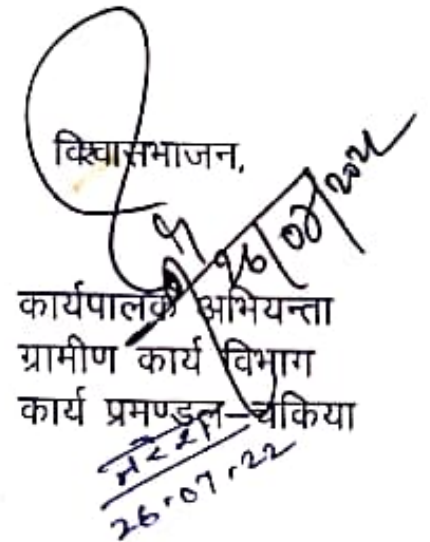 विश्वासभाजन,
26/07/2022
कार्यपालक अभियन्ता
ग्रामीण कार्य विभाग
कार्य प्रमण्डल–चकिया
26.07.22